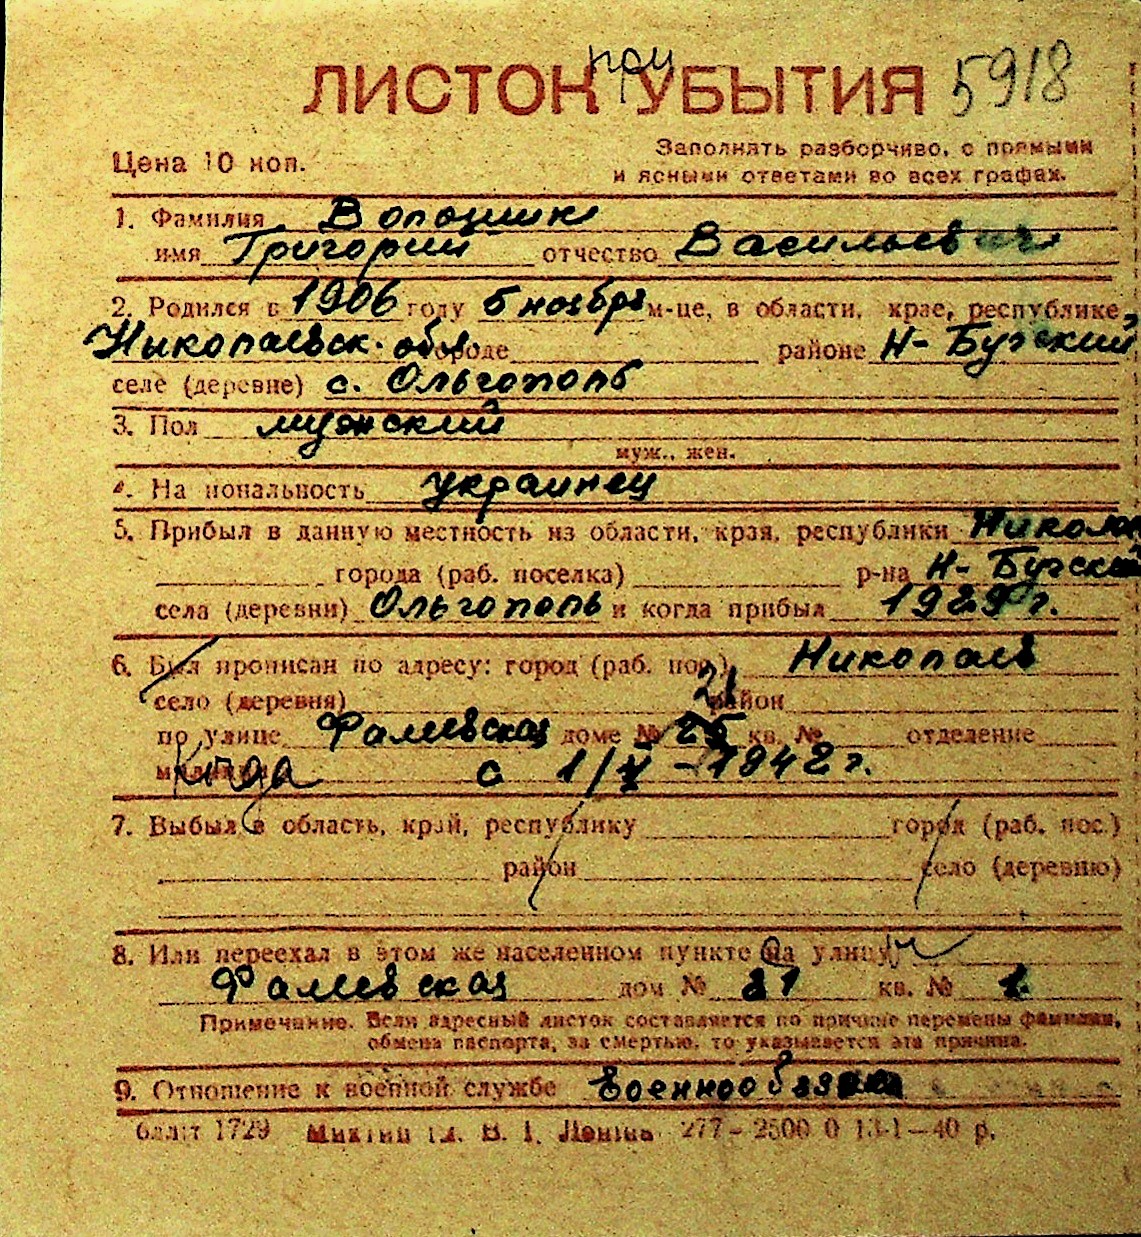 ЛИСТОК при УБЫТИЯ 5918
Цена 10 коп.
Заполнять разборчиво, с прямыми
и ясными ответами во всех графах.
1. Фамилия Волощик
имя Григорий отчество Васильевич
2. Родился в 1906 году 5 ноября м-це, в области, крае, республике,
Николаевск. обл. городе районе Н-Бугский
селе (деревне) с. Ольгополь
3. Пол мужский
муж., жен.
4. Национальность украинец
5. Прибыл в данную местность из области, края, республики Николаев
города (раб. поселка) р-на Н-Бугский
села (деревни) Ольгополь и когда прибыл 1929 г.
6. Был прописан по адресу: город (раб. пос.) Николаев
село (деревня) район 21
по улице Фалеевская доме № кв. № отделение
милиции с 1/V-1942 г.
7. Выбыл в область, край, республику город (раб. пос.)
район село (деревню)
8. Или переехал в этом же населенном пункте на улицу
Фалеевская дом № 21 кв. № 1.
Примечание. Если адресный листок составляется по причине перемены фамилии,
обмена паспорта, за смертью, то указывается эта причина.
9. Отношение к военной службе
1729 277-2500 0 13-1-40 р.